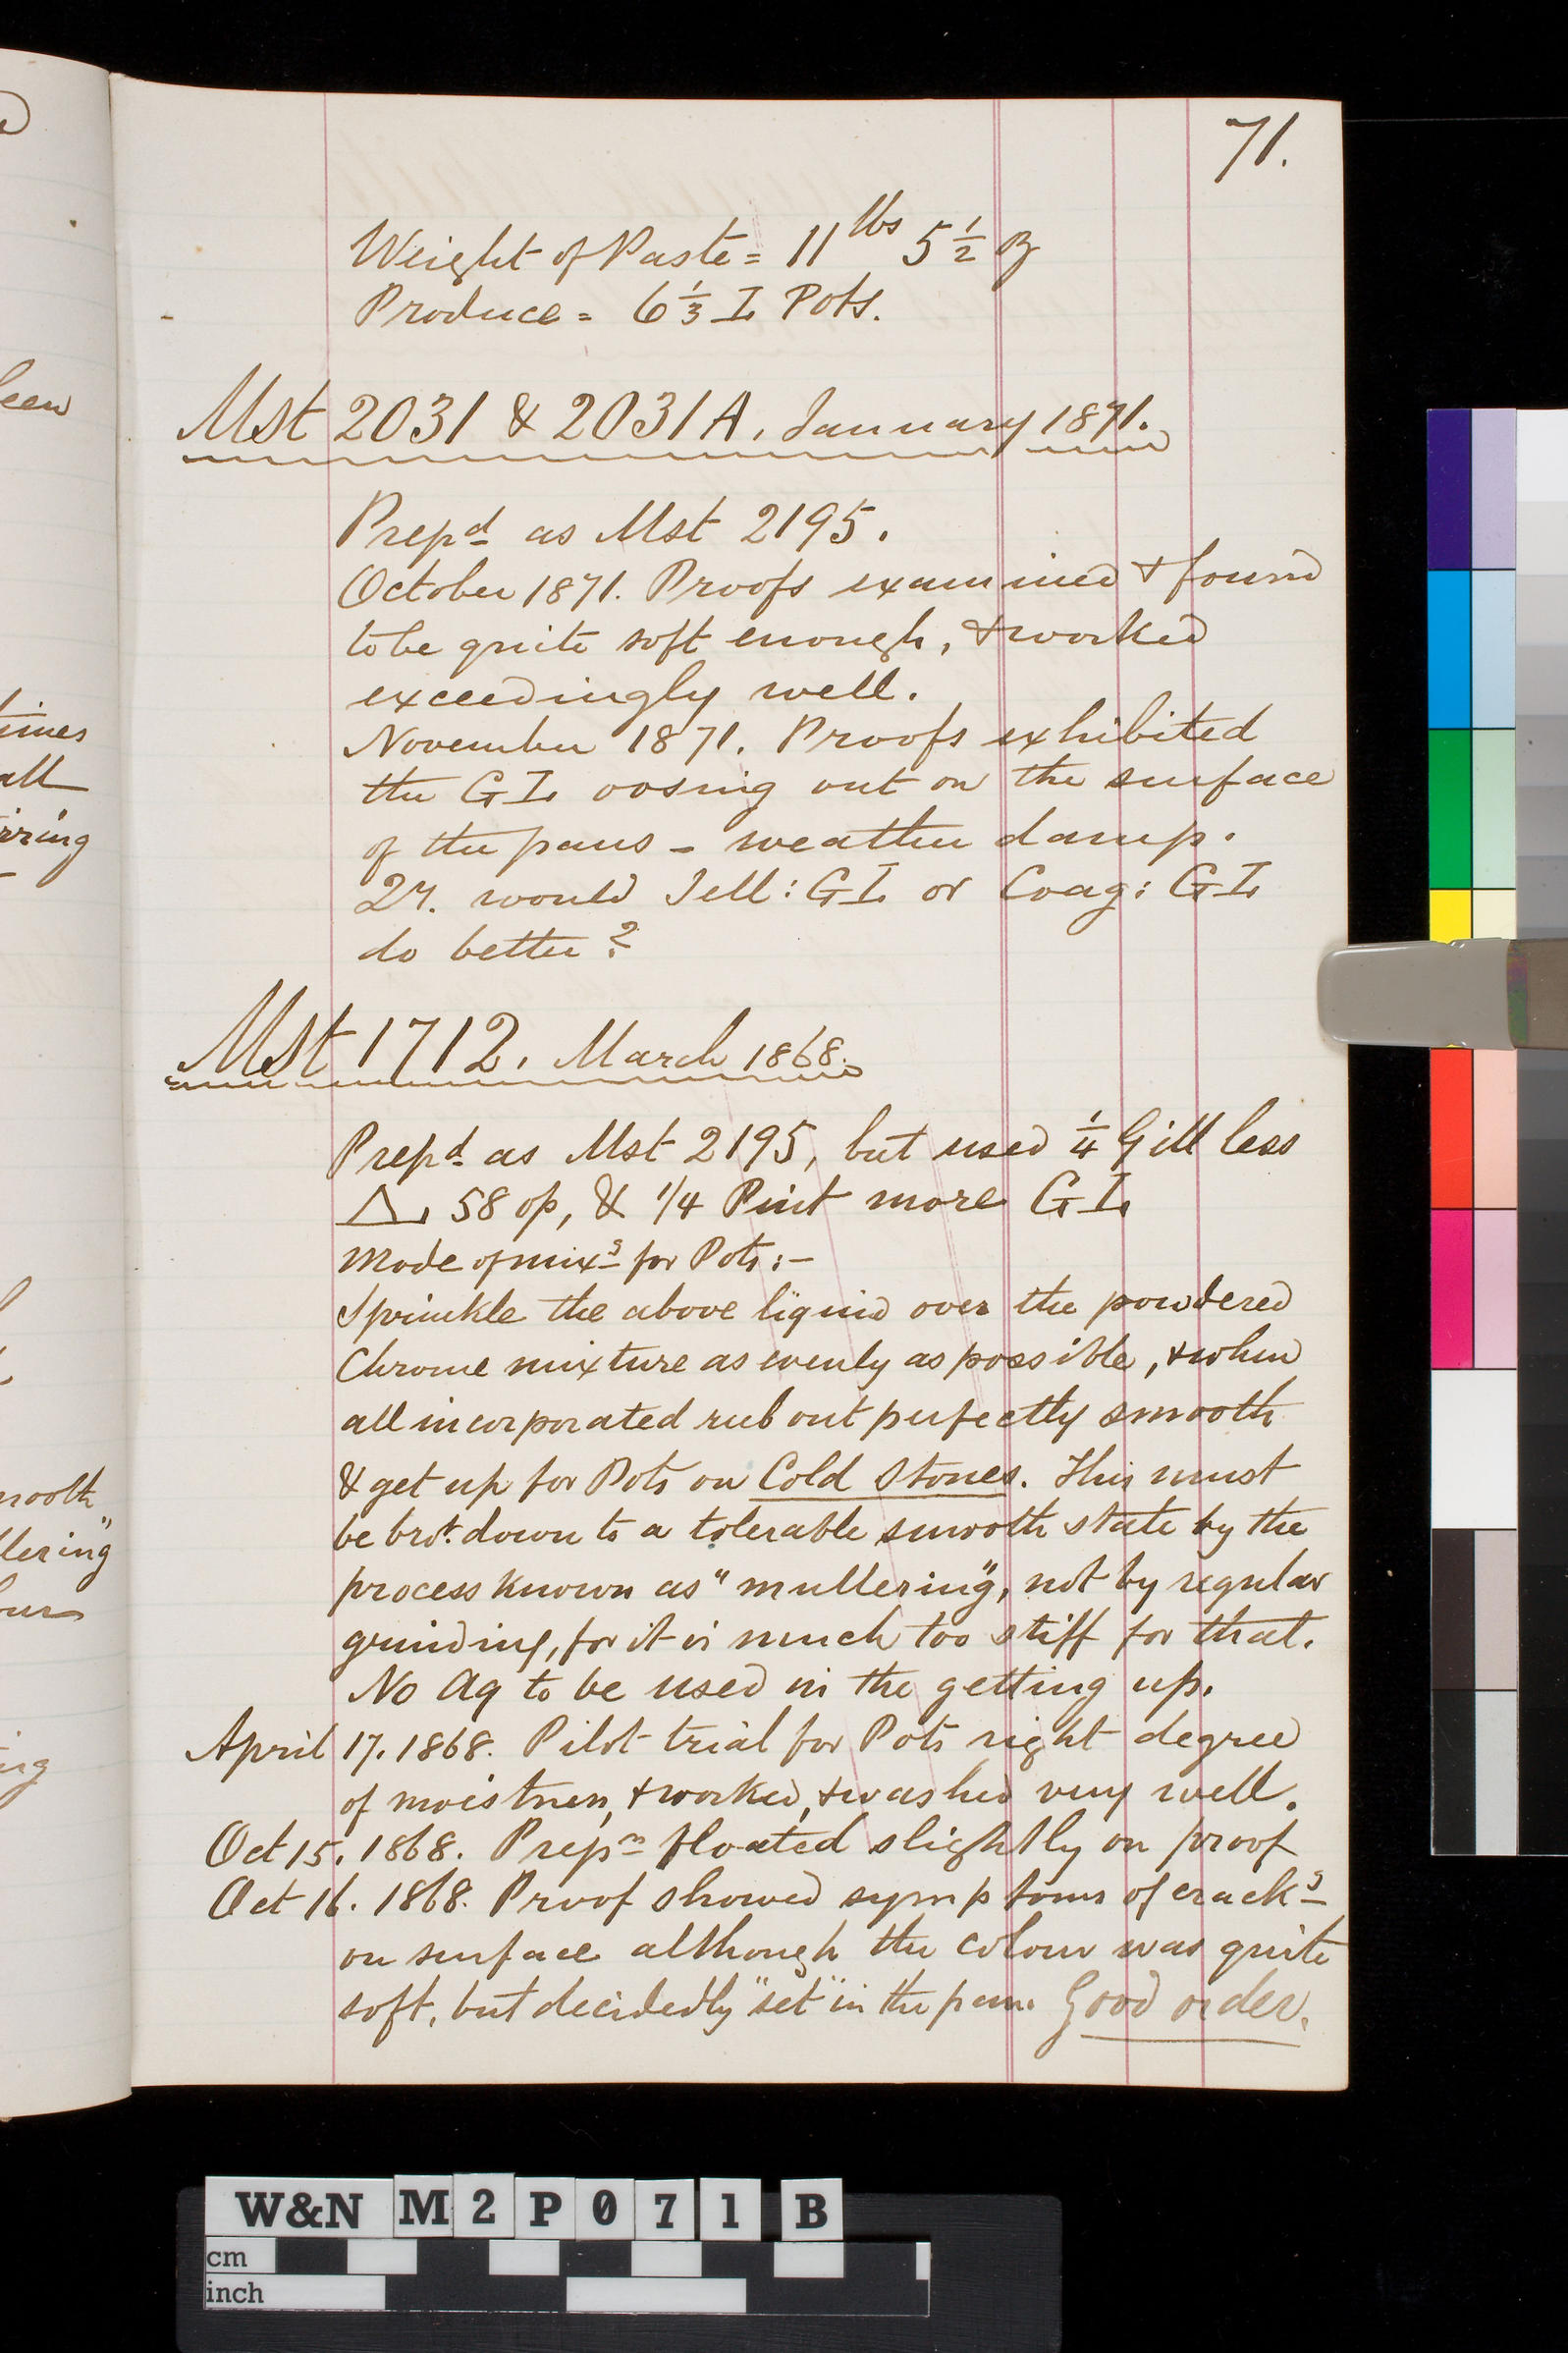 71.
Weight of Paste = 11 lbs 5 1/2 oz
Produce = 6 1/3 I. Pots.
Mst 2031 & 2031A. January 1871.
Prepd as Mst 2195.
October 1871. Proofs examined & found
to be quite soft enough, & worked
exceedingly well.
November 1871. Proofs exhibited
the GI. oosing out on the surface
of the pans - weather damp.
Would Jell: GI. or Coag: GI.
do better?
Mst 1712. March 1868.
Prepd as Mst 2195, but used 1/4 Gill less
58 op, & 1/4 Pint more GI.
Mode of mixg for Pots:-
Sprinkle the above liquid over the powdered
Chrome mixture as evenly as possible, & when
all incorporated rub out perfectly smooth
& get up for Pots on Cold Stones. This must
be brot. down to a tolerable smooth state by the
process known as "mullering", not by regular
grinding, for it is much too stiff for that.
No Aq to be used in the getting up.
April 17. 1868. Pilot trial for Pots right degree
of moistness, & worked, & washed very well.
Oct 15. 1868. Prepn floated slightly on proof
Oct 16. 1868. Proof showed symptoms of crackg
on surface although the colour was quite
soft, but decidedly "set" in the pan. Good order.
een
times
all
rring
mooth
llering"
ours
ing
W&N M2P071B
cm
inch